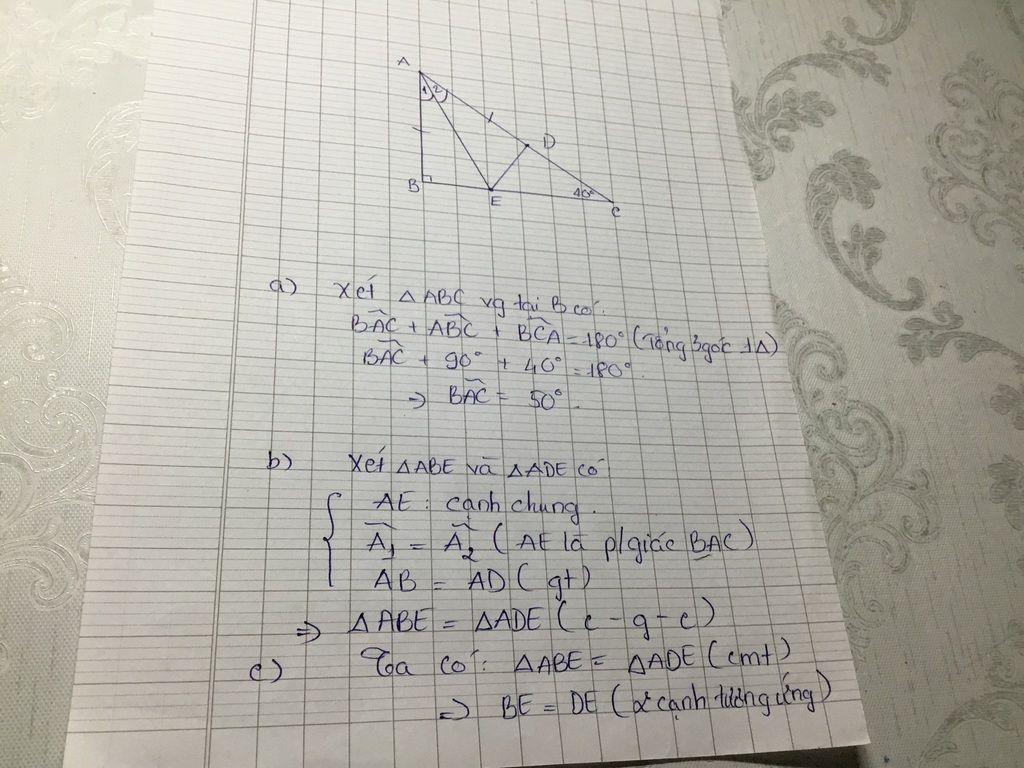 A
1 2
D
B
E
40°
C
a) Xét △ABC vg tại B có:
BÂC + AB̂C + BĈA = 180° (Tổng 3 góc 1△)
BÂC + 90° + 40° = 180°.
⇒ BÂC = 50°.
b) Xét △ABE và △ADE có
AE : cạnh chung.
Â₁ = Â₂ (AE là p/giác BAC)
AB = AD (gt)
⇒ △ABE = △ADE (c - g - c)
c) Ta có: △ABE = △ADE (cmt)
⇒ BE = DE (2 cạnh tương ứng)